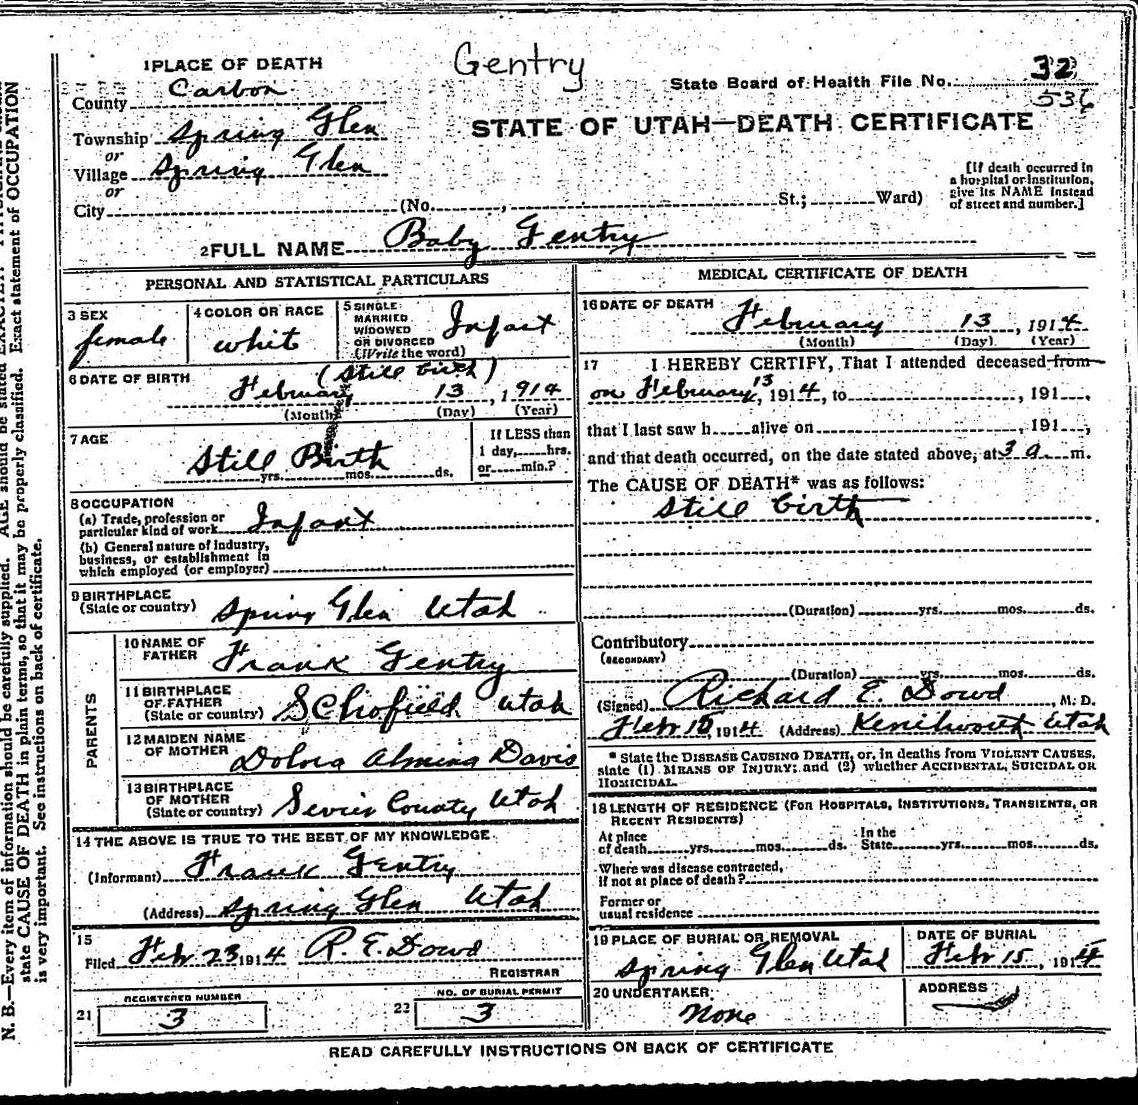 Gentry
1 PLACE OF DEATH
County Carbon
Township Spring Glen
or
Village Spring Glen
or
City (No. , St.; Ward)
State Board of Health File No. 32
536
STATE OF UTAH—DEATH CERTIFICATE
[If death occurred in
a hospital or institution,
give its NAME instead
of street and number.]
2 FULL NAME Baby Gentry
PERSONAL AND STATISTICAL PARTICULARS
3 SEX
female
4 COLOR OR RACE
whit
5 SINGLE
MARRIED
WIDOWED
OR DIVORCED
(Write the word)
Infant
6 DATE OF BIRTH
(Still birth)
February 13, 1914
(Month) (Day) (Year)
7 AGE
Still Birth
yrs. mos. ds.
If LESS than
1 day, hrs.
or min.?
8 OCCUPATION
(a) Trade, profession or
particular kind of work Infant
(b) General nature of industry,
business, or establishment in
which employed (or employer)
9 BIRTHPLACE
(State or country) Spring Glen Utah
PARENTS
10 NAME OF
FATHER Frank Gentry
11 BIRTHPLACE
OF FATHER
(State or country) SChofield Utah
12 MAIDEN NAME
OF MOTHER Davis
13 BIRTHPLACE
OF MOTHER
(State or country) Sevier County Utah
14 THE ABOVE IS TRUE TO THE BEST OF MY KNOWLEDGE
(Informant) Frank Gentry
(Address) Spring Glen Utah
15
Filed Feb 23 1914 R. E. Dowd
REGISTRAR
21 REGISTERED NUMBER
3
22 NO. OF BURIAL PERMIT
3
MEDICAL CERTIFICATE OF DEATH
16 DATE OF DEATH
February 13, 1914
(Month) (Day) (Year)
17 I HEREBY CERTIFY, That I attended deceased from
on February 13, 1914, to , 191 ,
that I last saw h alive on , 191 ,
and that death occurred, on the date stated above, at 3 a m.
The CAUSE OF DEATH* was as follows:
Still birth
(Duration) yrs. mos. ds.
Contributory
(SECONDARY)
(Duration) yrs. mos. ds.
(Signed) Richard E. Dowd, M. D.
Feb 15 1914 (Address) Kenilworth Utah
* State the DISEASE CAUSING DEATH, or, in deaths from VIOLENT CAUSES,
state (1) MEANS OF INJURY; and (2) whether ACCIDENTAL, SUICIDAL OR
HOMICIDAL.
18 LENGTH OF RESIDENCE (FOR HOSPITALS, INSTITUTIONS, TRANSIENTS, OR
RECENT RESIDENTS)
At place
of death yrs. mos. ds.
In the
State yrs. mos. ds.
Where was disease contracted,
if not at place of death?
Former or
usual residence
19 PLACE OF BURIAL OR REMOVAL
Spring Glen Utah
DATE OF BURIAL
Feb 15, 1914
20 UNDERTAKER
None
ADDRESS
READ CAREFULLY INSTRUCTIONS ON BACK OF CERTIFICATE
N. B.—Every item of information should be carefully supplied. AGE should be stated EXACTLY.
state CAUSE OF DEATH in plain terms, so that it may be properly classified. Exact statement of OCCUPATION
is very important. See instructions on back of certificate.